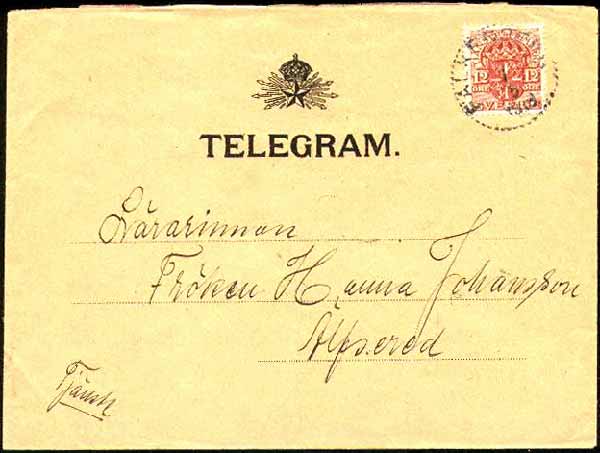 12 12
ÖRE ÖRE
TELEGRAM.
Lärarinnan
Fröken Hanna Johansson
Älfsered
Tjänste